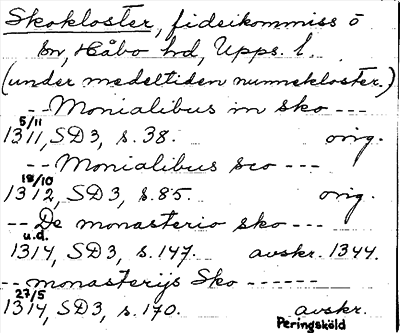 Skokloster, fideikommiss o
sn, Håbo hd, Upps. l
(under medeltiden nunnekloster.)
-- Monialibus in sko ---
5/11
1311, SD3, s. 38. orig.
-- Monialibus sco ---
18/10
1312, SD3, s. 85. orig.
-- De monasterio sko ---
u.d.
1314, SD3, s. 147. avskr. 1344.
-- monasterijs Sko ------
27/5
1314, SD3, s. 170. avskr.
Peringsköld